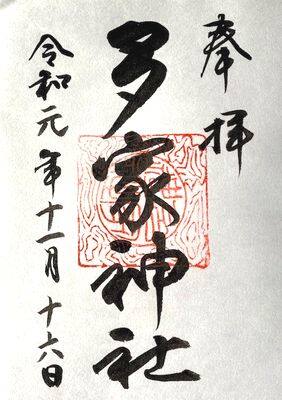 奉拝
多家神社
令和元年十一月十六日